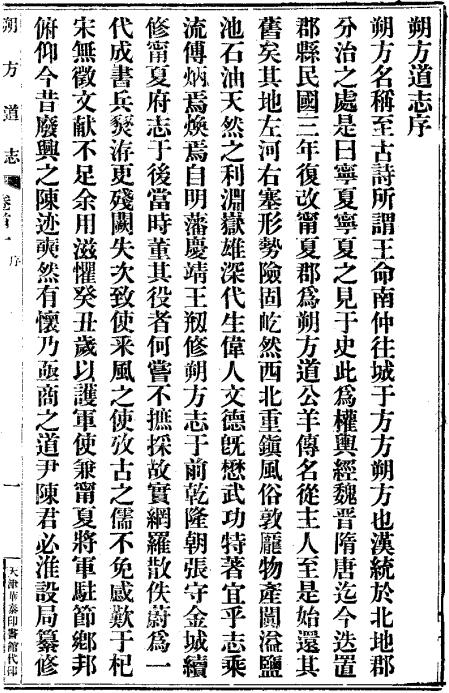 朔方道志序
朔方名稱至古詩所謂王命南仲往城于方方朔方也漢統於北地郡
分治之處是曰寧夏寧夏之見于史此爲權輿經魏晉隋唐迄今迭置
郡縣民國三年復改甯夏郡爲朔方道公羊傳名從主人至是始還其
舊矣其地左河右塞形勢險固屹然西北重鎮風俗敦龐物產闐溢鹽
池石油天然之利淵嶽雄深代生偉人文德旣懋武功特著宜乎志乘
流傳炳焉煥焉自明藩慶靖王剏修朔方志于前乾隆朝張守金城續
修甯夏府志于後當時董其役者何嘗不摭採故實網羅散佚蔚爲一
代成書兵燹洊更殘闕失次致使釆風之使攷古之儒不免感歎于杞
宋無徵文献不足余用滋懼癸丑歲以護軍使兼甯夏將軍駐節鄉邦
俯仰今昔廢興之陳迹奭然有懷乃亟商之道尹陳君必淮設局纂修
朔方道志 卷首 序 一 天津華泰印書館代印